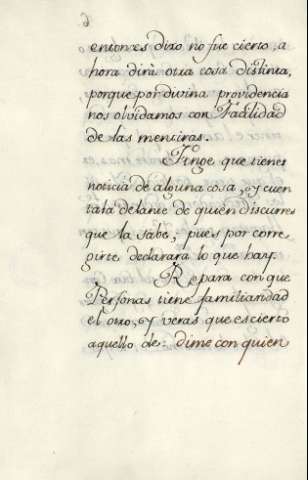 entonces dixo no fue cierto, a
hora dirá otra cosa distinta,
porque por divina providencia
nos olvidamos con Facilidad
de las mentiras.
Finge que tienes
noticia de alguna cosa, y cuen
tala delante de quien discurres
que la sabe, pues por corre
girte declarara lo que hay.
Repara con que
Personas tiene familiaridad
el otro, y veras que es cierto
aquello de: dime con quien